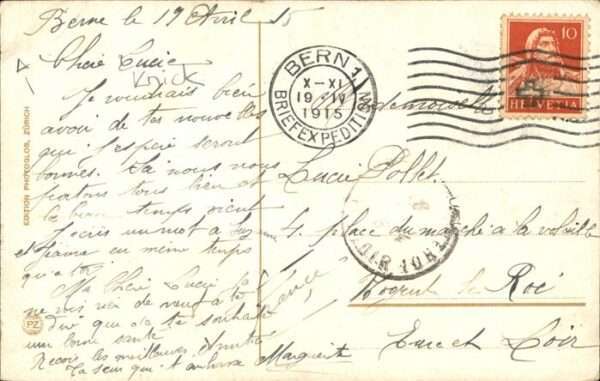 Berne le 19 Avril 15
Chère Lucie
Knick
Je voudrais bien
avoir de tes nouvelles
qui j'espère seront
bonnes. Ici nous nous
portons tous bien et
le beau temps vient
J'écris un mot à
et en même temps
qu'à toi
Ma Chère Lucie je
ne vois rien de neuf à te
dire que de te souhaiter
une bonne santé
Reçois les meilleures amitiés
Ta sœur qui t'
Marguerite
BERN 1
X-XI
19·IV
1915
BRIEFEXPEDITION
10
HELVETIA
Mademoiselle
Lucie Pollet
4. place du marché à la volaille
Nogent le Roi
Eure et Loir
EDITION PHOTOGLOB, ZÜRICH
PZ